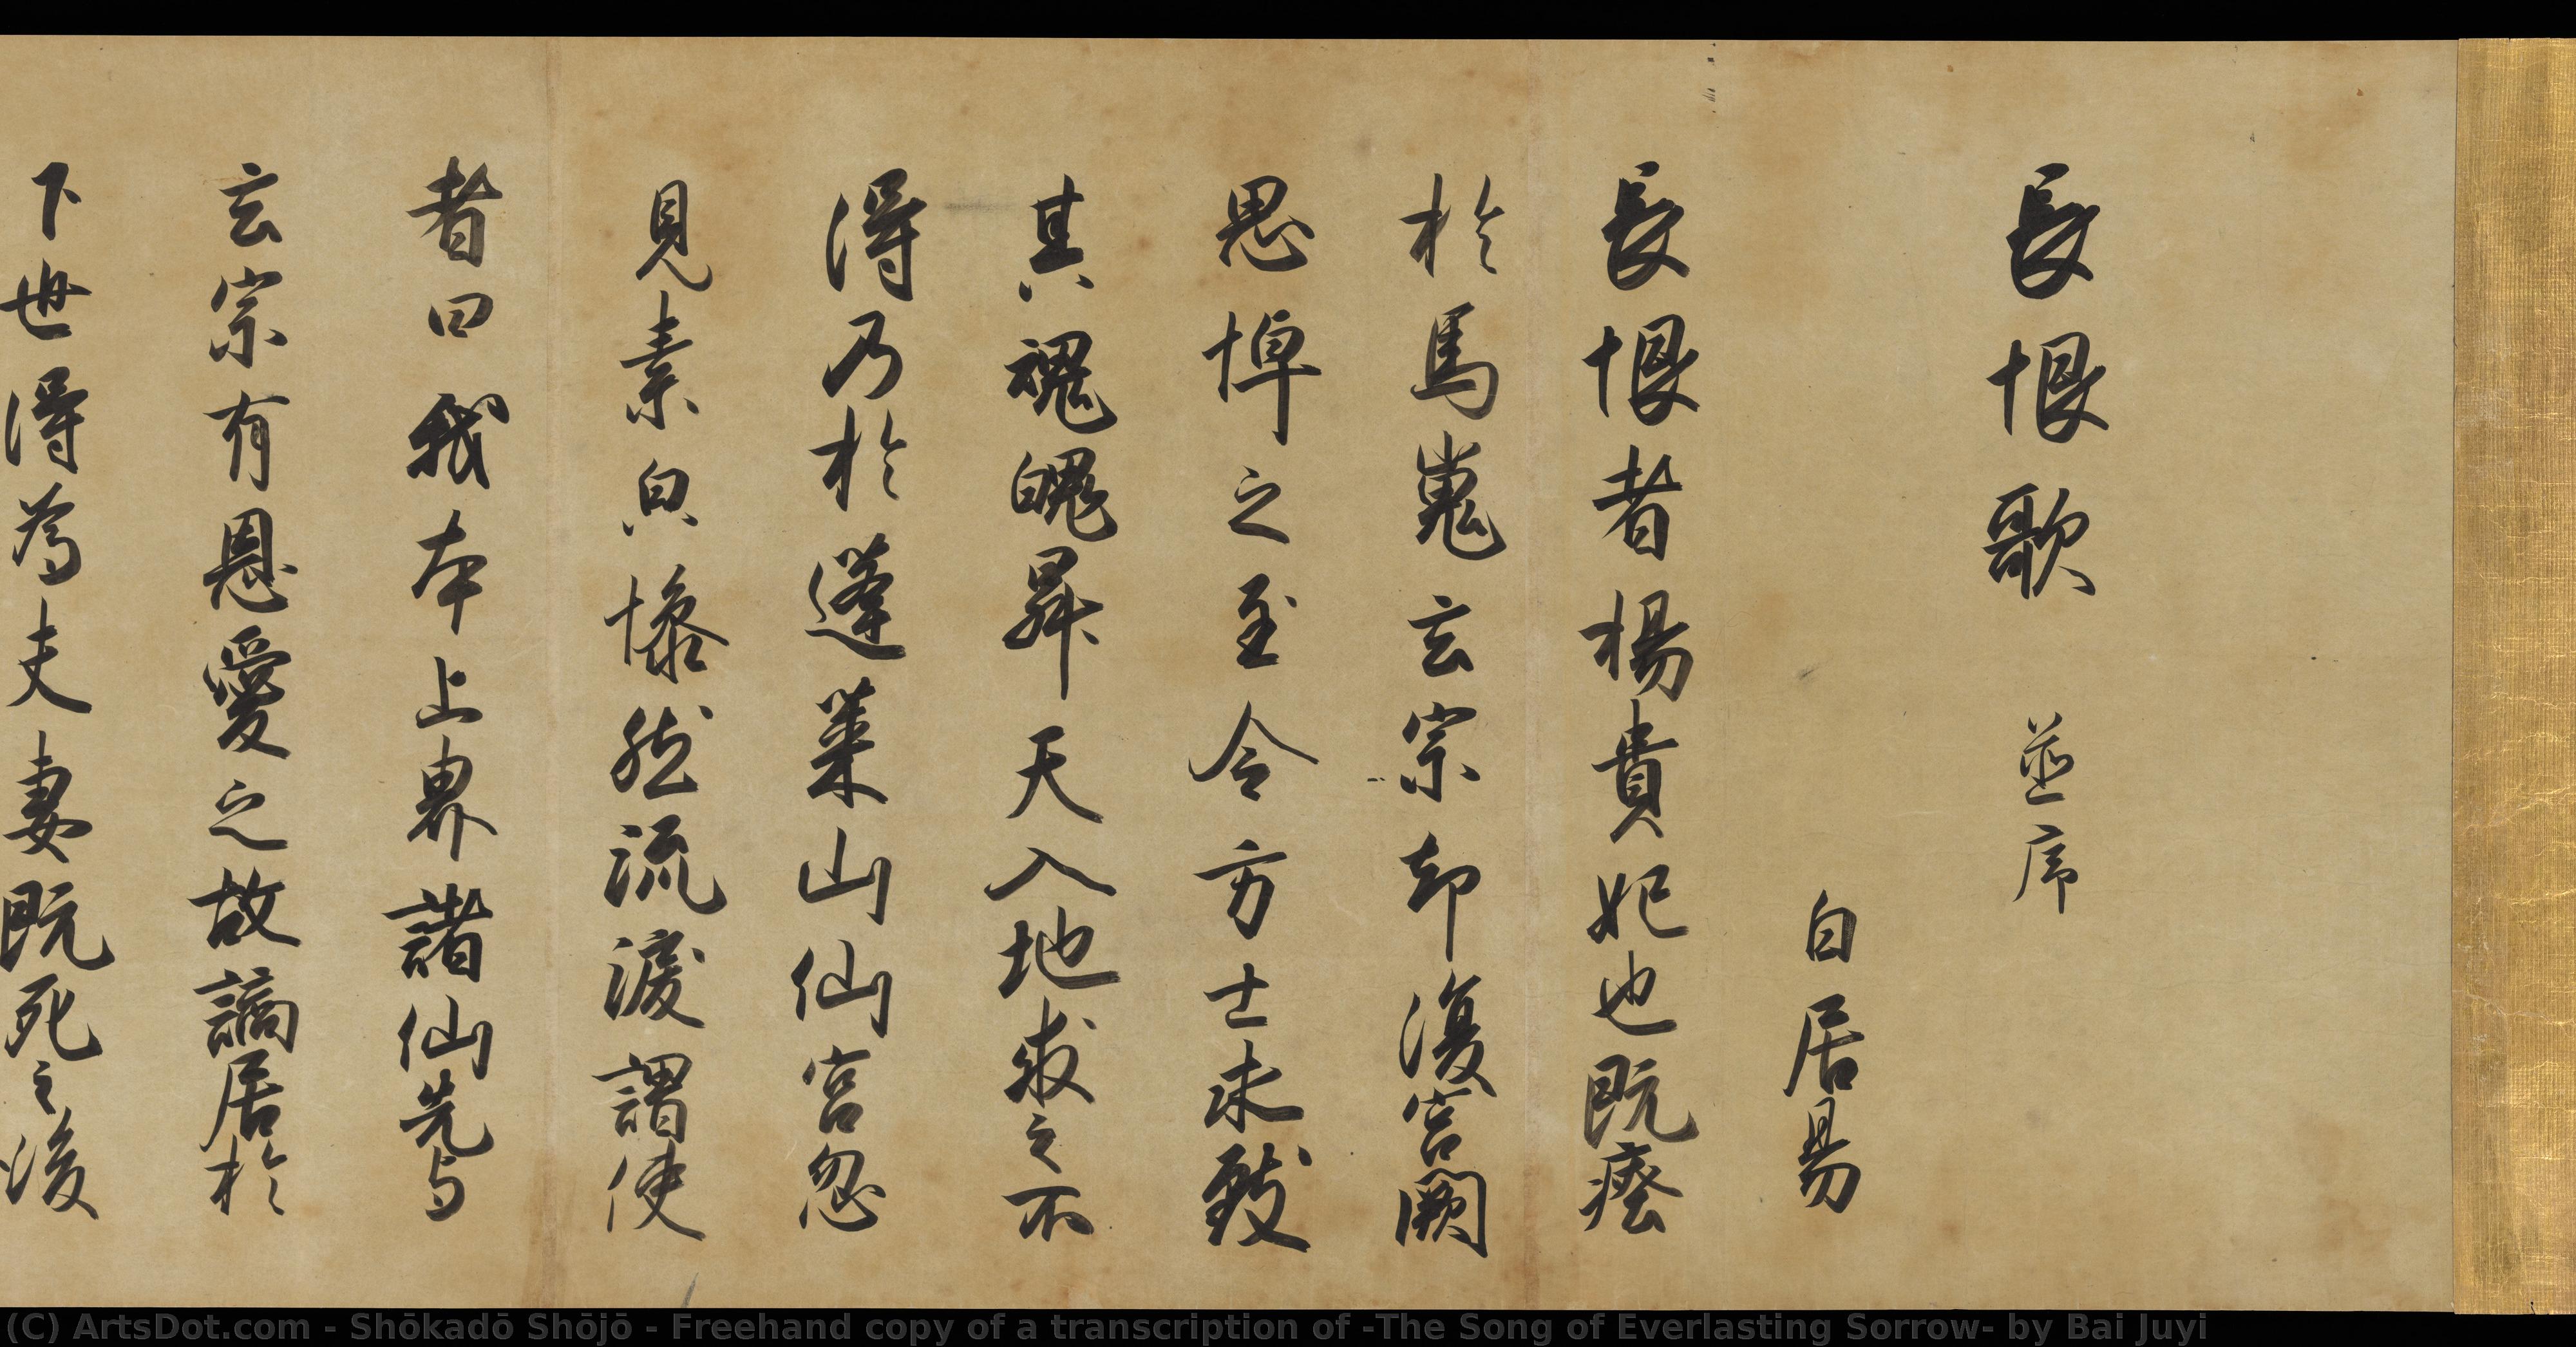 長恨歌 並序
白居易
長恨者楊貴妃也既瘞
於馬嵬玄宗却復宮闕
思悼之至令方士求致
其魂魄昇天入地求之不
得乃於蓬萊山仙宮忽
見素皃慘然流淚謂使
者曰我本上界諸仙先与
玄宗有恩愛之故謫居於
下世得為夫妻既死之後
(C) ArtsDot.com - Shōkadō Shōjō - Freehand copy of a transcription of -The Song of Everlasting Sorrow- by Bai Juyi